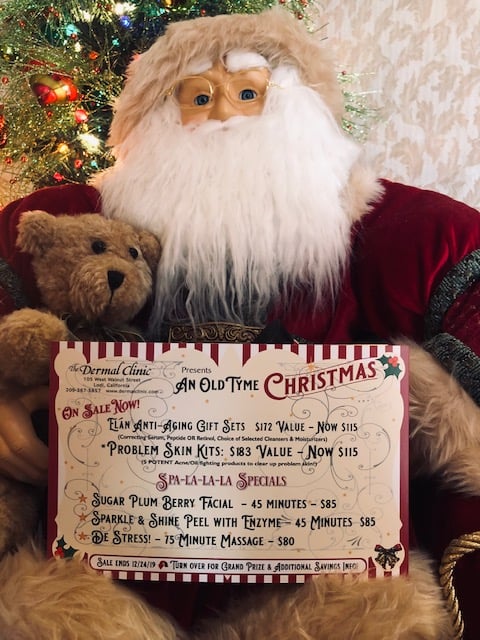 The Dermal Clinic
105 West Walnut Street
Lodi, California
209-367-5857 www.dermalclinic.com
Presents
An Old Tyme Christmas
On Sale Now!
Elán Anti-Aging Gift Sets $172 Value - Now $115
(Correcting Serum, Peptide OR Retinol, Choice of Selected Cleansers & Moisturizers)
*Problem Skin Kits: $183 Value - Now $115
(5 POTENT Acne/Oil fighting products to clear up problem skin!)
Spa-la-la-la Specials
Sugar Plum Berry Facial - 45 minutes - $85
Sparkle & Shine Peel with Enzyme - 45 Minutes $85
De Stress! - 75 Minute Massage - $80
Sale ends 12/24/19 Turn over for Grand Prize & Additional Savings Info!